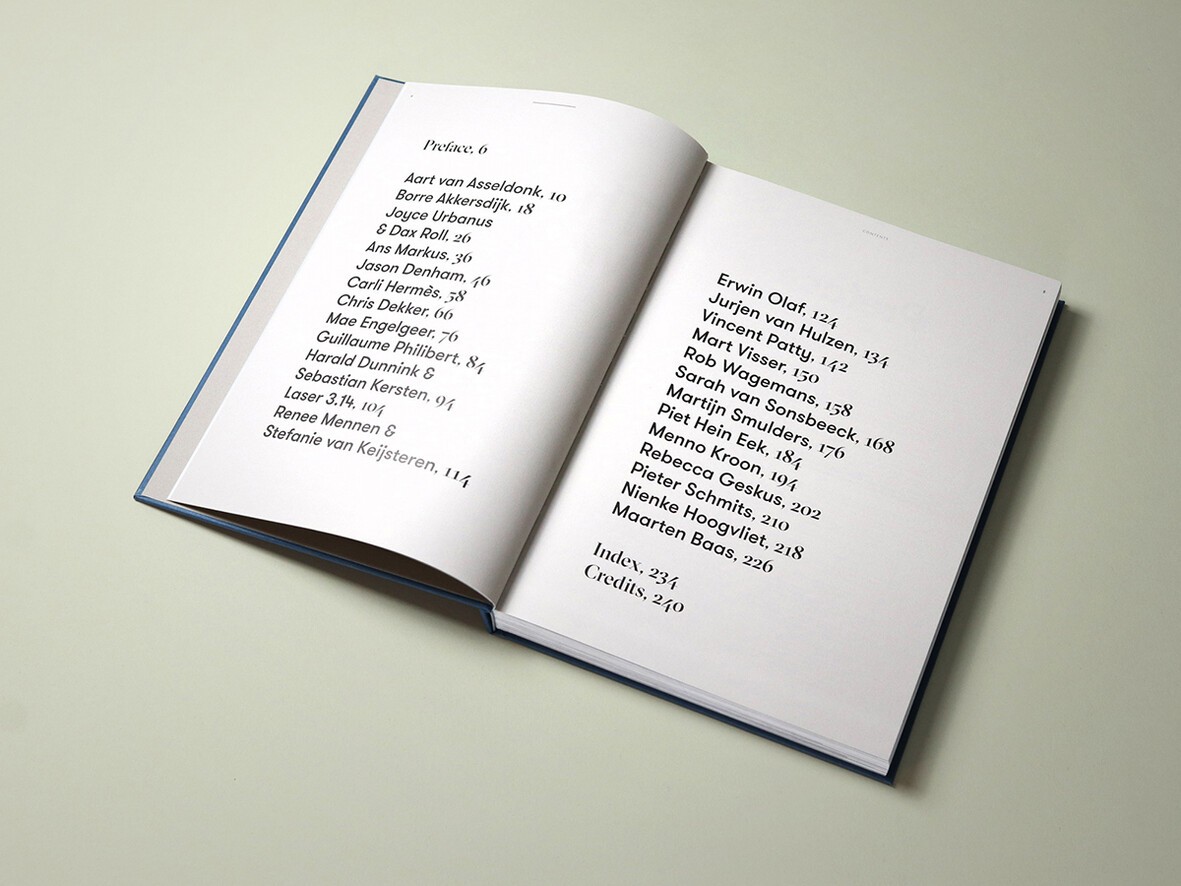 Preface, 6
Aart van Asseldonk, 10
Borre Akkersdijk, 18
Joyce Urbanus
& Dax Roll, 26
Ans Markus, 36
Jason Denham, 46
Carli Hermès, 58
Chris Dekker, 66
Mae Engelgeer, 76
Guillaume Philibert, 84
Harald Dunnink &
Sebastian Kersten, 94
Laser 3.14, 104
Renee Mennen &
Stefanie van Keijsteren, 114
Erwin Olaf, 124
Jurjen van Hulzen, 134
Vincent Patty, 142
Mart Visser, 150
Rob Wagemans, 158
Sarah van Sonsbeeck, 168
Martijn Smulders, 176
Piet Hein Eek, 184
Menno Kroon, 194
Rebecca Geskus, 202
Pieter Schmits, 210
Nienke Hoogvliet, 218
Maarten Baas, 226
Index, 234
Credits, 240